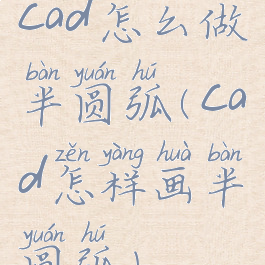 cad怎么做
bàn yuán hú
半圆弧(ca
zěn yàng huà bàn
d怎样画半
yuán hú
圆弧)